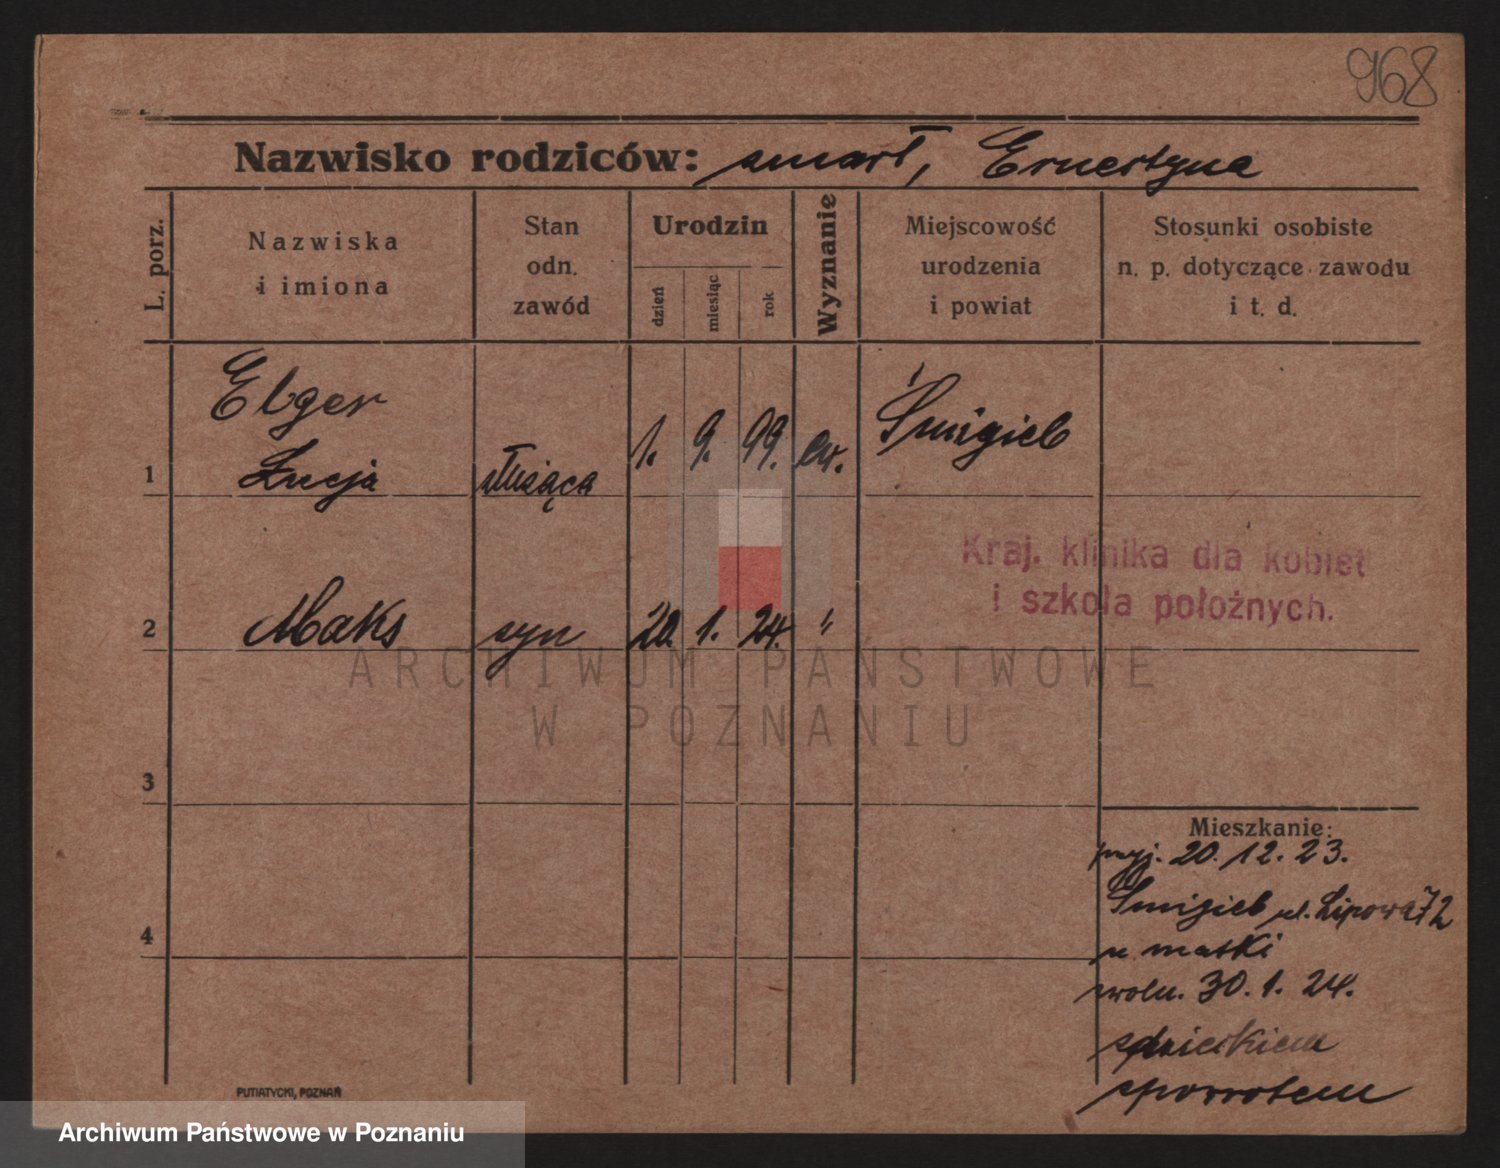 968
Nazwisko rodziców: zmarł, Ernestyna
L. porz.
Nazwiska
i imiona
Stan
odn.
zawód
Urodzin
dzień
miesiąc
rok
Wyznanie
Miejscowość
urodzenia
i powiat
Stosunki osobiste
n. p. dotyczące zawodu
i t. d.
Elger
1 Łucja służąca 1. 9. 99. ew. Śmigiel
Kraj. klinika dla kobiet
i szkoła położnych.
2 Maks syn 20. 1. 24. "
ARCHIWUM PAŃSTWOWE
W POZNANIU
3
4
Mieszkanie:
przyj. 20. 12. 23.
Śmigiel ul. Lipowa 72
u matki
zwoln. 30. 1. 24.
z dzieckiem
z powrotem
PUTIATYCKI, POZNAŃ
Archiwum Państwowe w Poznaniu